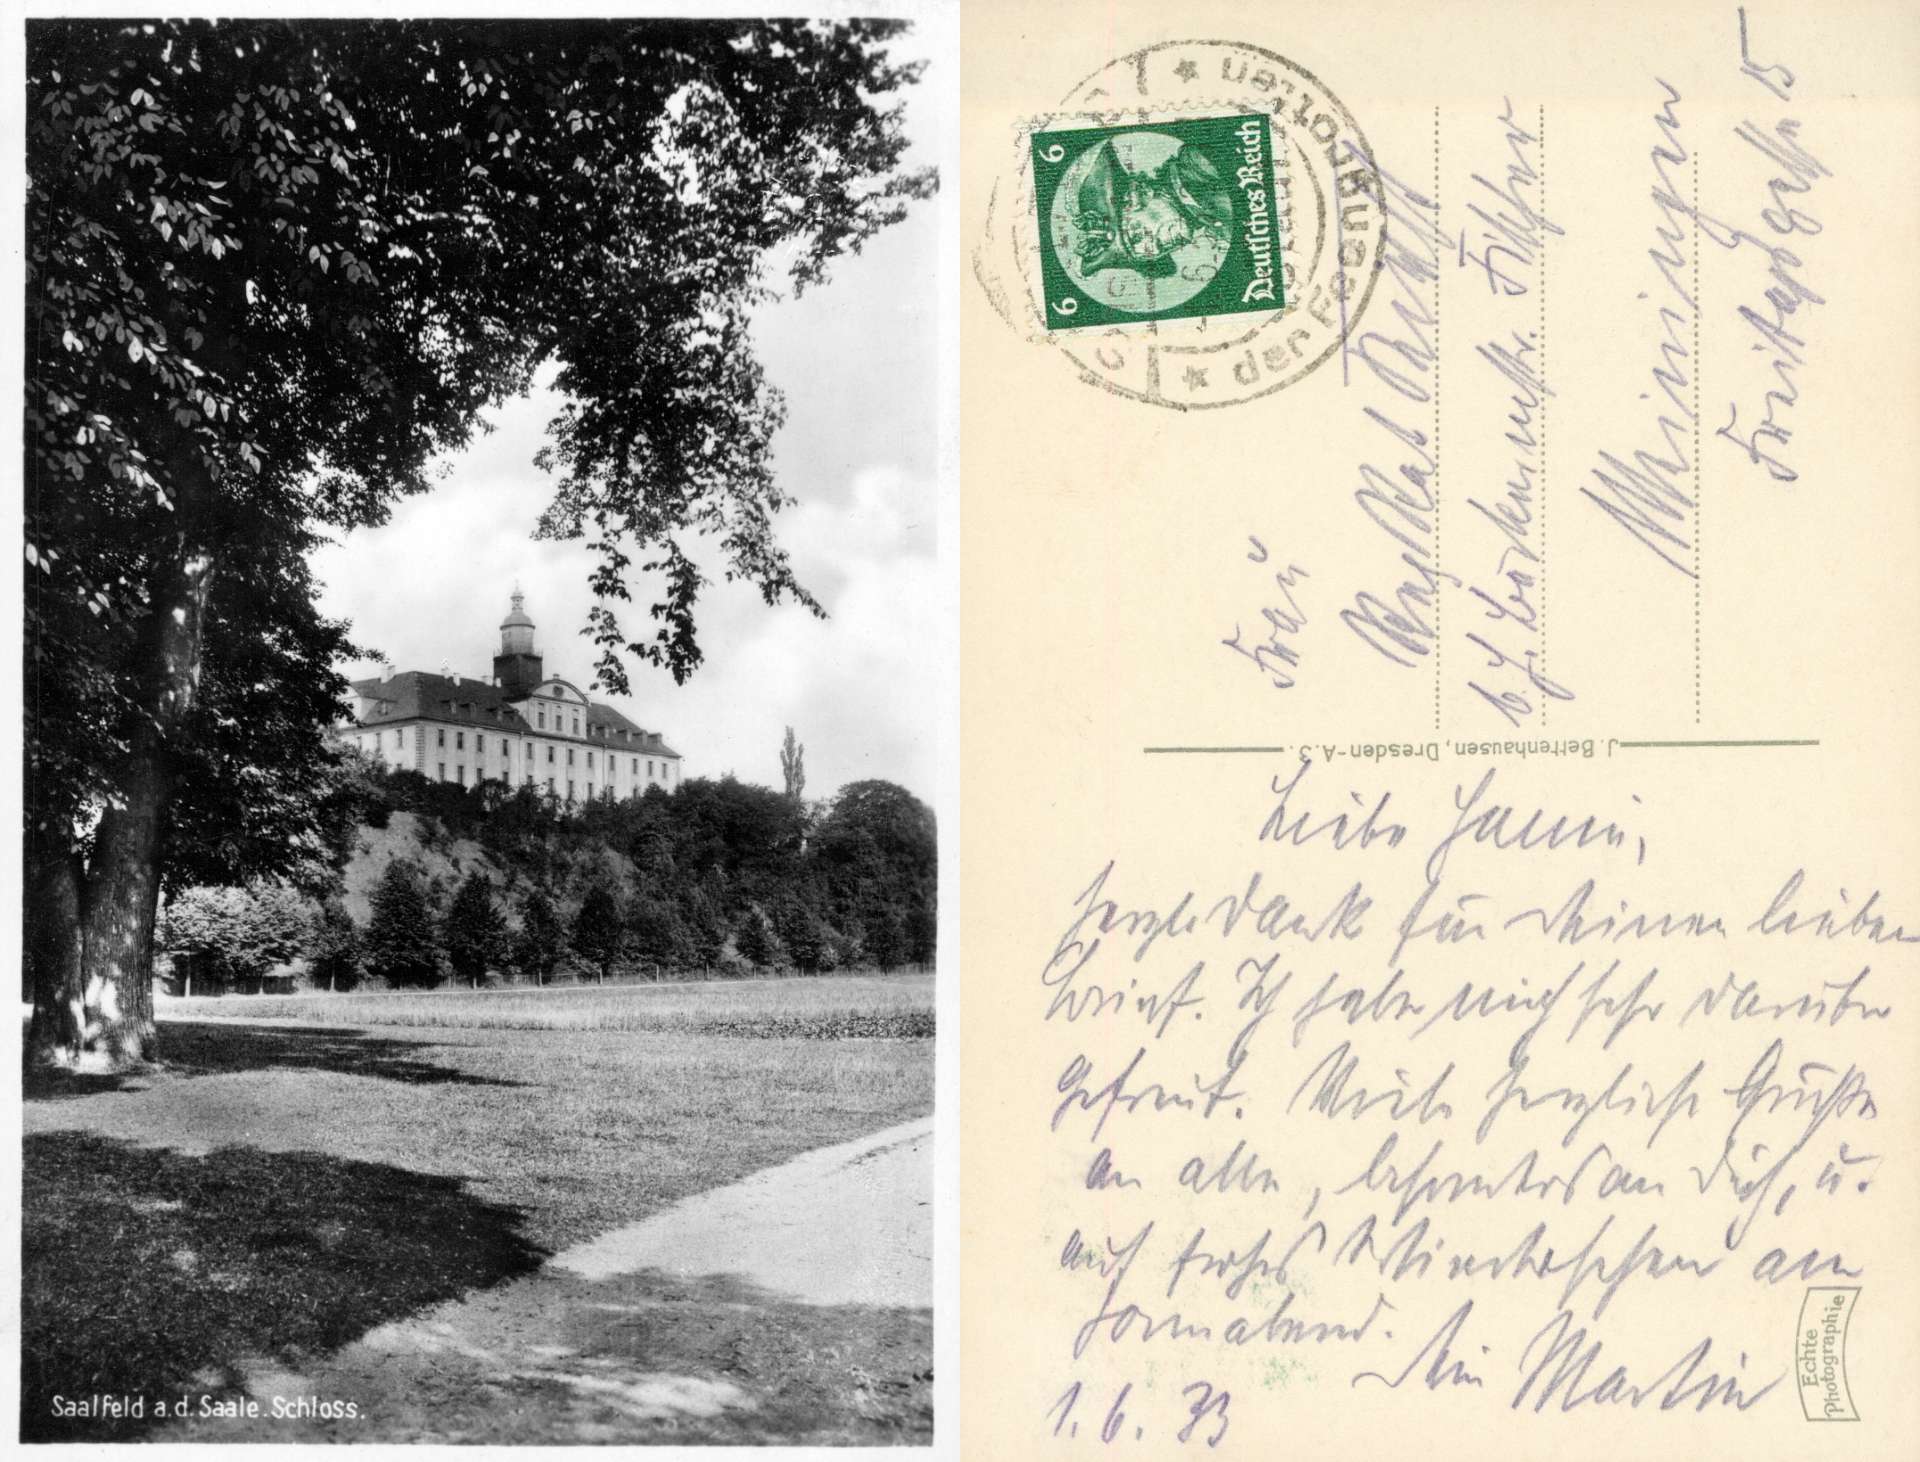 Saalfeld a.d. Saale. Schloss.
der Feengrotten
6
6
Deutsches Reich
Frau
Meiningen
15
J. Bettenhausen, Dresden-A.3.
Liebe
herzl. Dank für Deinen lieben
Brief. Ich habe mich sehr darüber
gefreut. Viele herzliche Grüße
an alle, besonders an Dich, u.
auf frohes Wiedersehen am
Sonnabend.
Dein Martin
1.6.33
Echte
Photographie